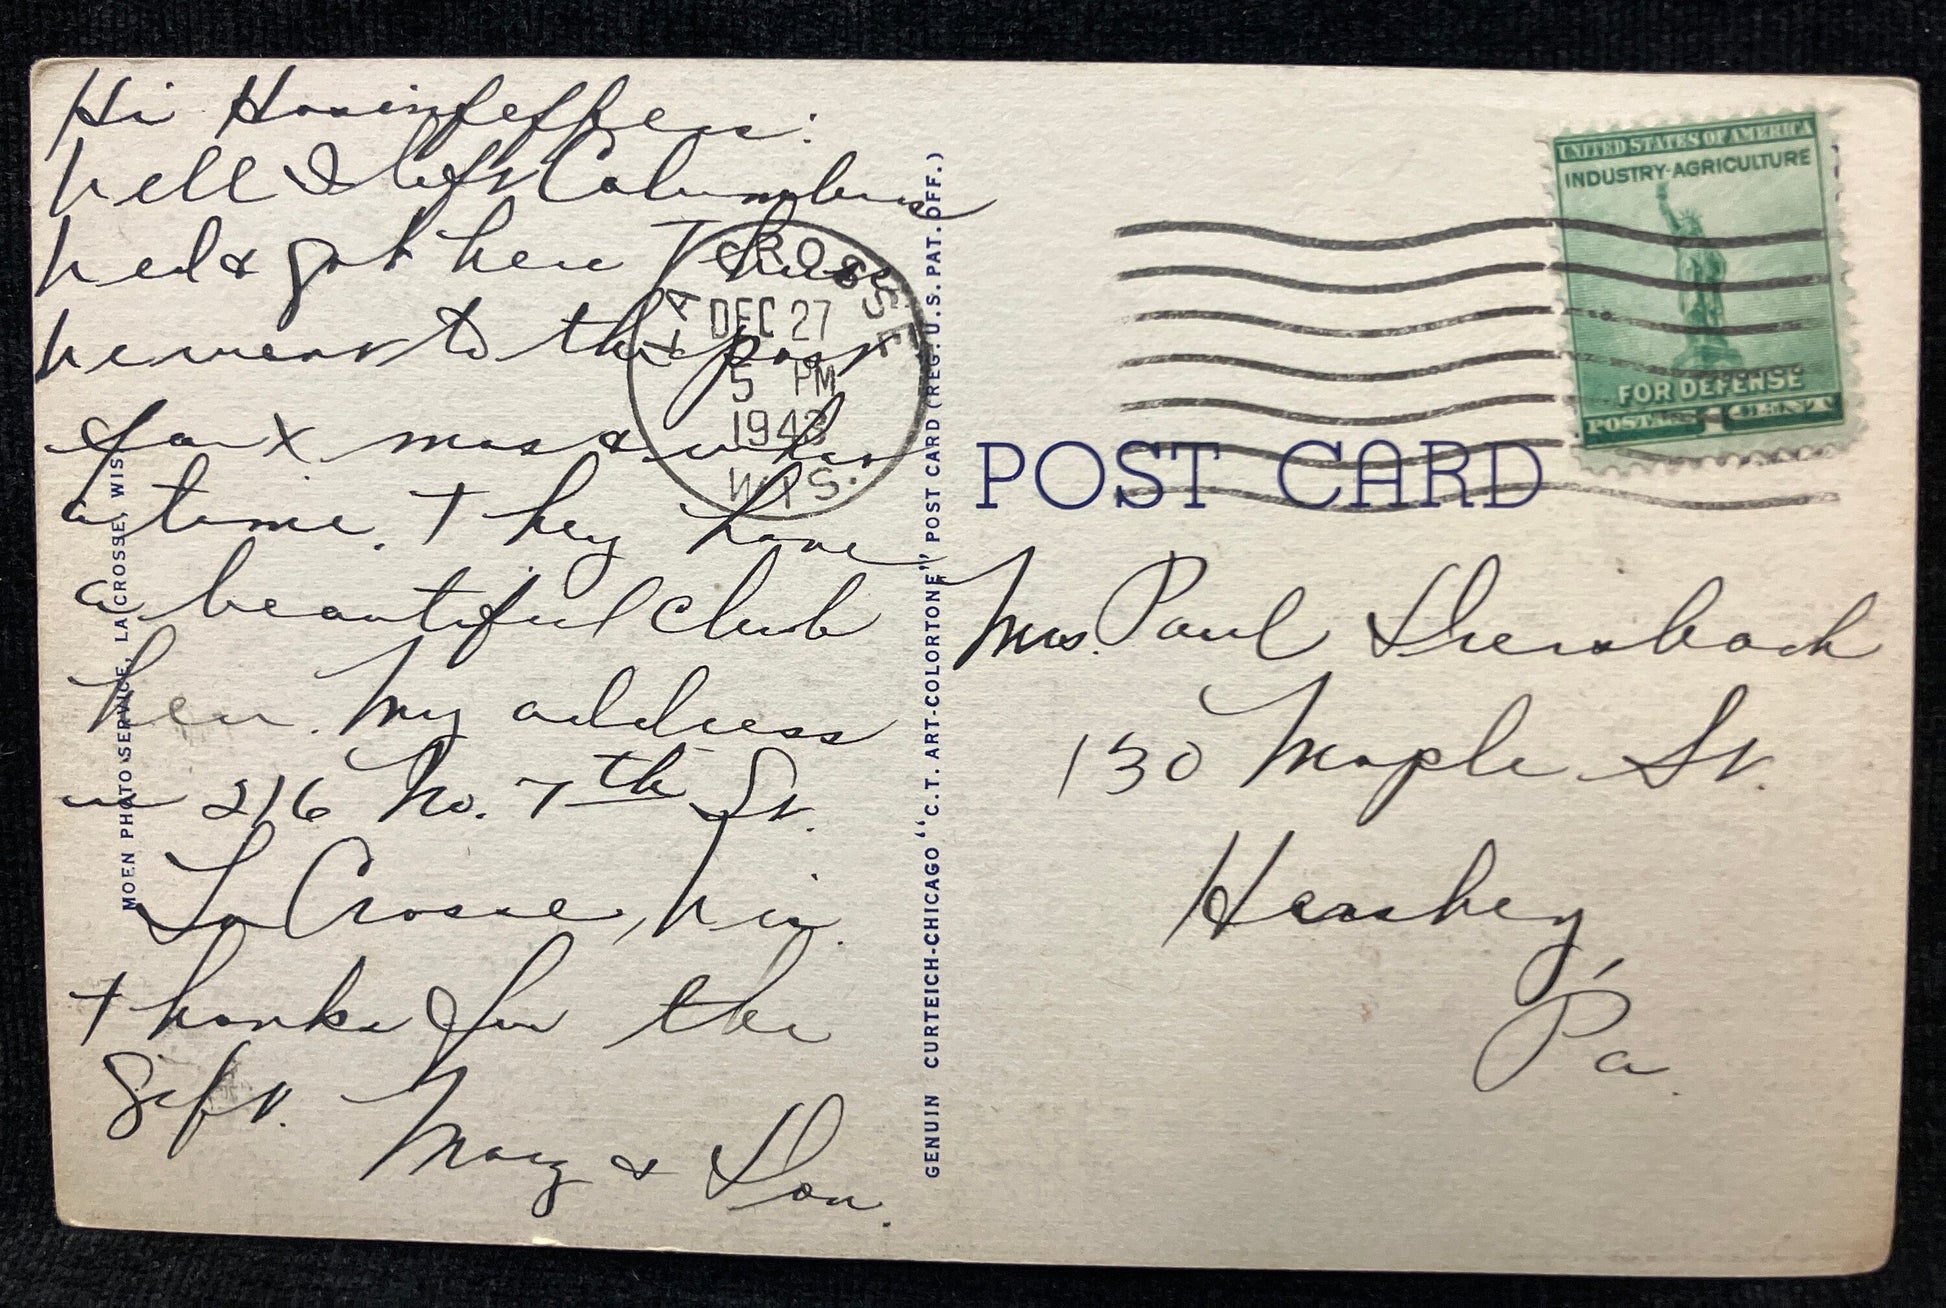 Hi
Well I left Columbus
Wed & got here Thurs
We went to the post
for X mas & what
a time. They have
a beautiful club
here. My address
is 216 No. 7th St.
La Crosse, Wis.
Thanks for the
gift.
Mary & Don.
LA CROSSE
DEC 27
5 PM
1943
WIS.
MOEN PHOTO SERVICE, LA CROSSE, WIS.
GENUIN CURTEICH-CHICAGO "C.T. ART-COLORTONE" POST CARD (REG. U.S. PAT. OFF.)
UNITED STATES OF AMERICA
INDUSTRY-AGRICULTURE
FOR DEFENSE
POSTAGE 1 CENT
POST CARD
Mrs. Paul
130 Maple St.
Hershey,
Pa.